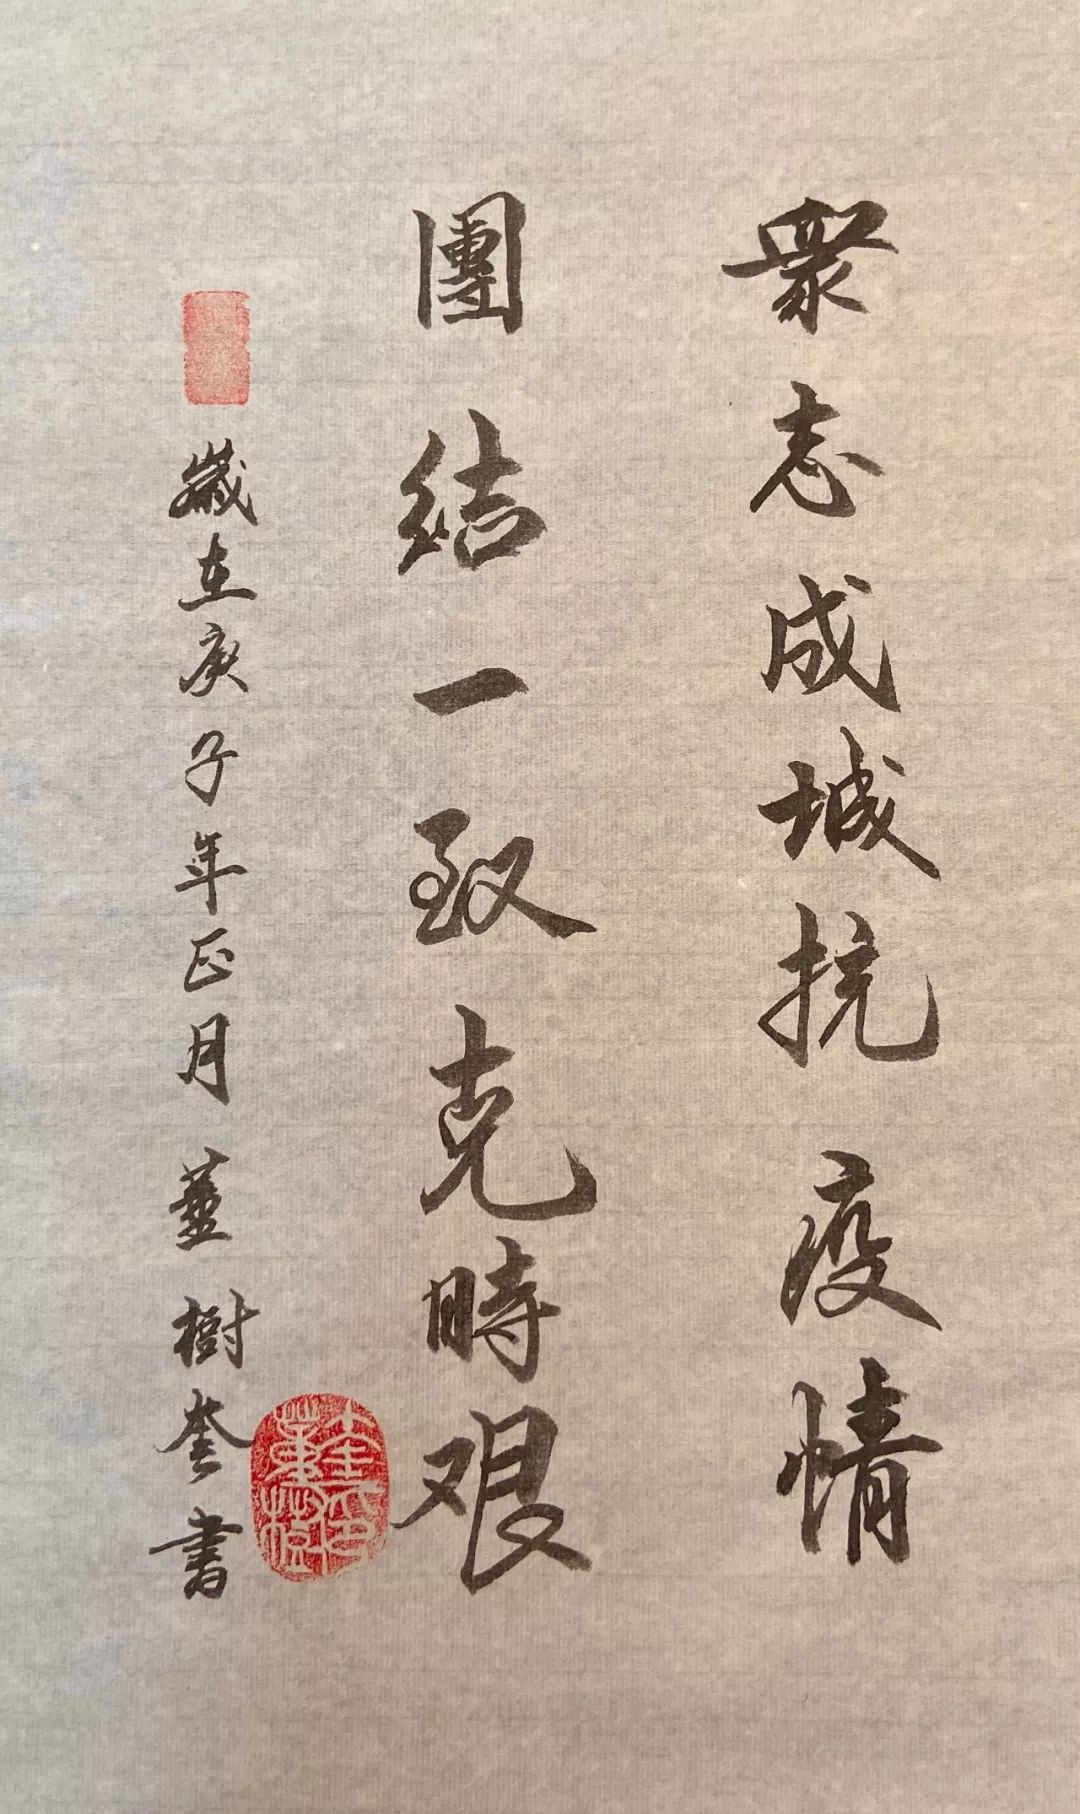 眾志成城抗疫情
團結一致克時艱
歲在庚子年正月董樹奎書